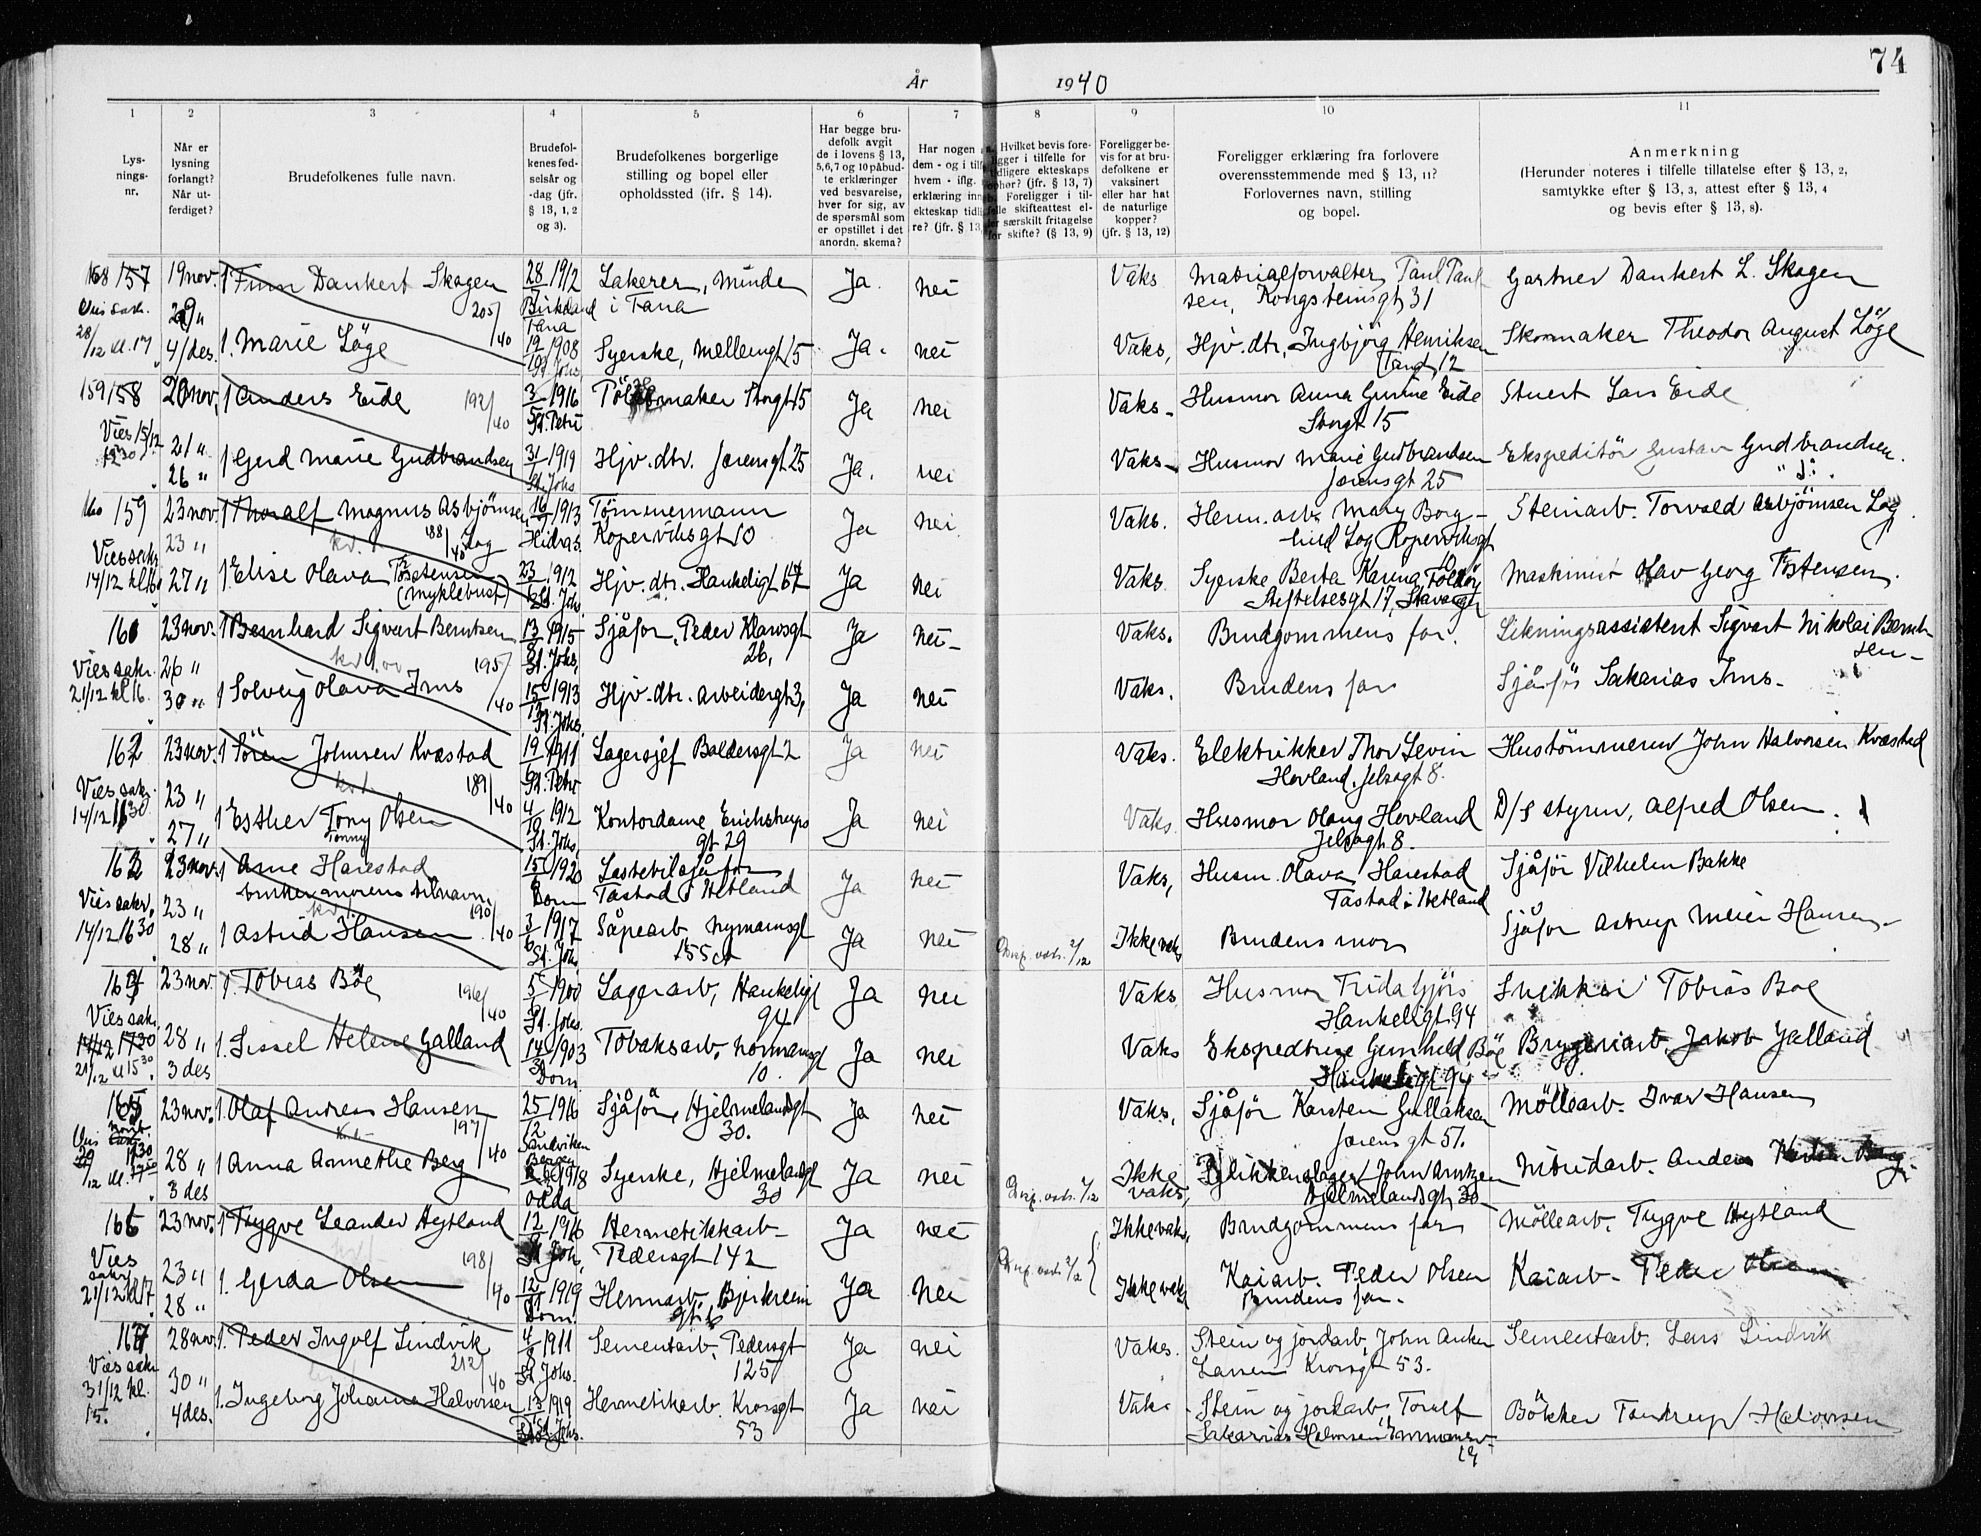 74
År 1940
1 2 3 4 5 6 7 8 9 10 11
Lys-
nings-
nr.
Når er
lysning
forlangt?
Når ut-
ferdiget?
Brudefolkenes fulle navn.
Brudefol-
kenes fød-
selsår og
-dag (jfr.
§ 13, 1, 2
og 3).
Brudefolkenes borgerlige
stilling og bopel eller
opholdssted (ifr. § 14).
Har begge bru-
defolk avgit
de i lovens § 13,
5,6,7 og 10 påbud-
te erklæringer
ved besvarelse,
hver for sig, av
de spørsmål som
er opstillet i det
anordn. skema?
Har nogen
dem - og i
hvem - iflg.
erklæring
ekteskap
re? (jfr. § 13,
Hvilket bevis fore-
ligger i tilfelle for
tidligere ekteskaps
ophør? (jfr. § 13, 7)
Foreligger i til-
felle skifteattest el-
ler særskilt fritagelse
for skifte? (§ 13, 9)
Foreligger be-
vis for at bru-
defolkene er
vaksinert
eller har hat
de naturlige
kopper?
(jfr. § 13, 12)
Foreligger erklæring fra forlovere
overensstemmende med § 13, 11?
Forlovernes navn, stilling
og bopel.
Anmerkning
(Herunder noteres i tilfelle tillatelse efter § 13, 2,
samtykke efter § 13, 3, attest efter § 13, 4
og bevis efter § 13, 8).
158 157 19 nov. 1 Finn Dankert Skagen 28 1912 Lakerer, Minde Ja. nei Vaks Matrialforvalter, Paul Paul- Gartner Dankert L. Skagen
29 " 205/40 i Tana sen, Kongsteinsgt 31
28/12 kl. 17 4/des. 1. Marie Löge 19 1908 Syerske, Mellemgt 15 Ja. nei Vaks, Hjv. dtr. Ingbjörg Henriksen Skomaker Theodor August Löge
St. Johs 12
159 158 20 nov. 1 Anders Eide 192/40 3 1916 Storgt 15 Ja nei Vaks. Husmor Anna Gurine Eide Stuert Lars Eide
St. Petri Storgt 15
Vies 15/12 21 " 1 Gerd Marie Gudbrandsen 31 1919 Hjv. dtr. Jærensgt 25 Ja. nei Vaks Husmor Marie Gudbrandsen Ekspeditör Gustav Gudbrandsen.
26 " St. Johs Jærensgt 25
160 159 23 nov 1 Thoralf Magnus Asbjörnsen 16 1913 Tømmermann Ja nei. Vaks. Herm. arb. Mary Borg- Steinarb. Torvald Asbjörnsen Log
23 " 188/40 Log Hidra s. Koperviksgt 10 hild Log Koperviksgt
Vies sakr. 14/12 27 " 1. Elise Olava Tostensen 23 1912 Hjv. dtr. Haukeligt Ja nei Vaks. Syerske Berta Karina Maskinist Olav Georg Tostensen.
(Myklebust) St. Johs Stiftelsesgt 17, Stavanger
161 23 nov. 1 Bernhard Sigvart Berntsen 13 1915 Sjåfør, Peder Klowsgt Ja nei Vaks. Brudgommens far. Likningsassistent Sigvart Nikolai Bernt-
Vies sakr. 26 " 195/40 St. Johs. 26, sen
21/12 kl 16. 30 " 1 Solveig Olava Ims 15 1913 Hjv. dtr. Arbeidergt 3, Ja nei Vaks. Brudens far Sjåför Sakarias Ims.
St. Johs.
162 23 nov. 1 Sören Johnsen Kvæstad 19 1911 Lagersjef Baldersgt 2 Ja nei Vaks. Elektrikker Thor Levin Hustömmerm John Halvorsen Kvæstad
Vies sakr. 23 " 189/40 St. Petri Hovland, Jelsagt 8.
14/12 27 " 1 Esther Tony Olsen 4 1912 Kontordame Erichstrups Ja nei Vaks. Husmor Olaug Hovland D/S styrm, Alfred Olsen.
Tonny St. Johs. gt 29 Jelsagt 8.
163 23 nov. 1 Arne Harestad 15 1920 Lastebilsjåfør Ja nei Vaks, Husm. Olava Harestad Sjåför Vilhelm Bakke
bruker morens tilnavn. Dom Tastad i Hetland Tastad i Hetland
Vies sakr. 23 " 190/40
14/12 16 30 28 " 1 Astrid Hansen 3 1917 Såpearb Nymansgt Ja nei Disp. vaks. 2/12 Ikke vaks Brudens mor Sjåfør Astrup Meier Hansen
St. Johs 155 ct
164 23 nov. 1. Tobias Böe 5 1900 Lagerarb, Haukeligt Ja nei Vaks. Husmor Frida Gjörs Snekker Tobias Böe
Vies sakr. 196/40 St. Johs. 94 Haukeligt. 94
14/12 17 30 28 " 1. Sissel Helene Galland 14 1903 Tobaksarb. Normannsgt Ja nei Vaks Ekspedtrise Gunhild Böe Bryggeriarb. Jakob Galland
21/12 kl 15 30 3 des Dom. 10. Haukeligt 94
165 23 nov. 1. Olaf Andreas Hansen 25 1916 Sjåför, Hjelmelandsgt Ja nei Vaks. Sjåför Karsten Gullaksen Möllearb. Ivar Hansen
197/40 12 30. Jærensgt 51.
Sandviken Bergen
28 " 1 Anna Annethe Berg 1918 Syerske, Hjelmelandsgt Ja nei Disp. vaks. 2/12 Ikke vaks, Blikkenslager John Mindarb. Anders
3 des Odda 30 Hjelmelandsgt 30
166 23 nov. 1 Trygve Leander Hytland 12 1916 Hermetikkarb Ja nei Ikke vaks, Brudgommens far Möllearb. Trygve Hytland
Vies sakr. 198/40 St Joh. Pedersgt 142 Disp. vaks. 2/12
23 " 1. Gerda Olsen 12 1919 Hermarb. Bjerkreim Ja nei Ikke vaks Kaiarb. Peder Olsen Kaiarb. Peder Olsen
21/12 kl 17 28 " Dom. gt. 6 Brudens far.
167 28 nov. 1. Peder Ingolf Lindvik 4 1911 Sementarb. Pedersgt Ja nei Vaks. Stein og jordarb. John Anker Sementarb. Lars Lindvik
Vies sakr 30 " 212/40 St Johs. 125 Larsen Krossgt 53.
31/12 kl. 15. 4 des. 1. Ingeborg Johanna Halvorsen 13 1919 Hermetikarb. Krossgt Ja nei Vaks Stein og jordarb. Toralf Bökker Tandrup Halvorsen
St. Johs. 53 Sakarias Halvorsen